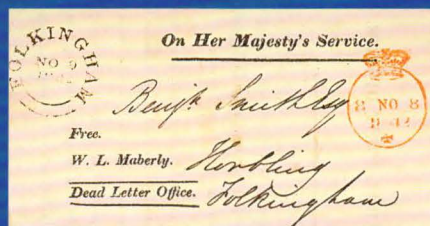 FOLKINGHAM
NO 9
On Her Majesty's Service.
8 NO 8
1842
Benjn. Smith Esq
Free.
W. L. Maberly.
Horbling
Dead Letter Office.
Folkingham